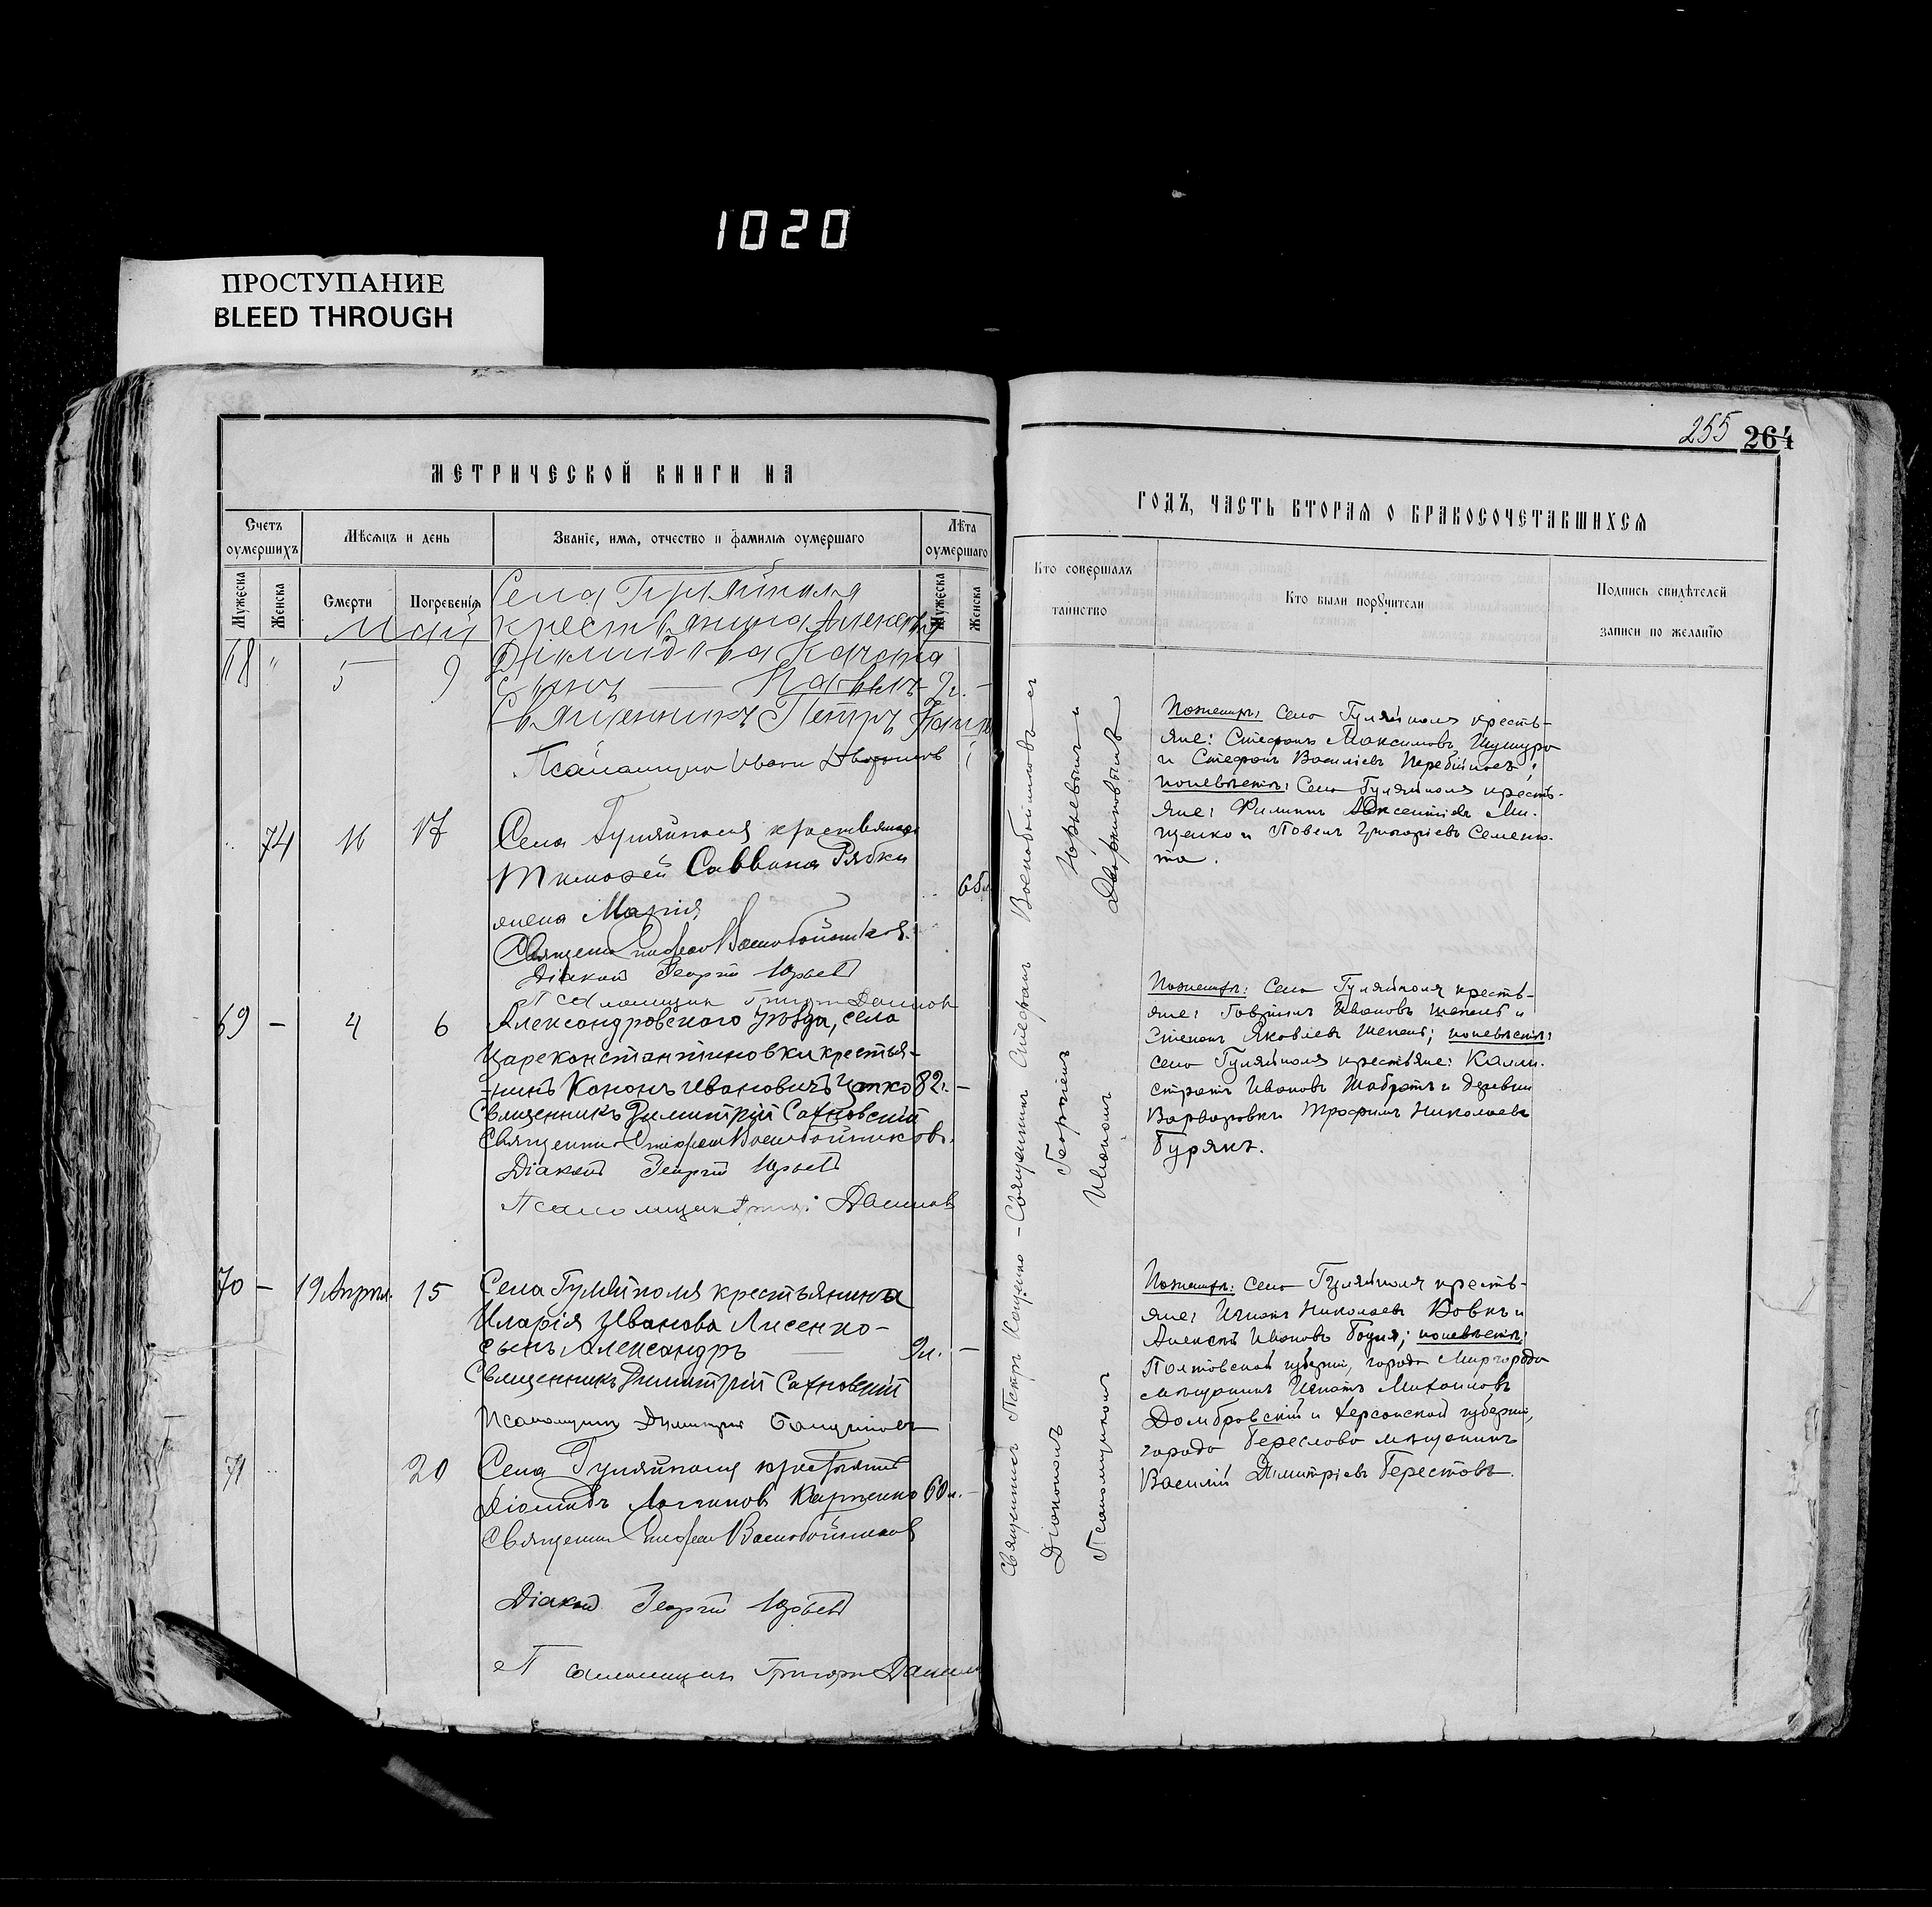 1020
ПРОСТУПАНИЕ
BLEED THROUGH
МЕТРИЧЕСКОЙ КНИГИ НА
Счетъ оумершихъ
Мѣсяцъ и день
Званіе, имя, отчество и фамилія оумершаго
Лѣта оумершаго
Мужеска
Женска
Смерти
Погребенія
Мужеска
Женска
Май
Села Гуляйполя
крестьянина
68 " 5 9
сынъ — Павелъ 9л. –
Священникъ Петръ
Псаломщикъ Иванъ Дворниковъ
74 16 17 Села Гуляйполя крестьянина
Тимофея Саввина Рябки
65л
жена Марія
Священн Стефан Воскобойников
Діакон Георгій Юрьев
Псаломщик Григор Данилов
69 – 4 6 Александровского уѣзда, села
Цареконстантиновки крестья-
нинъ Кононъ Ивановичъ 82. –
Священникъ Димитрій Сахновскій
Священник Стефан Воскобойников.
Діакон Георгій Юрьев
Псаломщик Григ. Данилов
70 – 19 Апрѣл. 15 Села Гуляйполя крестьянина
Иларія Иванова Лисенко –
сынъ Александръ — 9л. –
Священникъ Димитрій Сахновскій
Псаломщикъ Димитрій
71 20 Села Гуляйполя крестьянин
Діомидъ Логгинов Карпенко 60л. –
Священник Стефан Воскобойников
Діакон Георгій Юрьев
Псаломщик Григори Данилов
255 264
ГОДЪ, ЧАСТЬ ВТОРАЯ О БРАКОСОЧЕТАВШИХСЯ
Кто совершалъ таинство
Кто были поручители
Подпись свидѣтелей записи по желанїю
Священникъ Петръ Кащенко – Священникъ Стефанъ Воскобойниковъ съ
Діакономъ Георгіемъ Юрьевымъ и
Псаломщикомъ Иваномъ Дворниковымъ
По женихѣ: села Гуляйполя кресть-
яне: Стефанъ Максимовъ
и Стефанъ Василіевъ Перебійносъ;
по невѣстѣ: Села Гуляйполя кресть-
яне: Филиппъ Авксентіевъ Ми-
щенко и Павелъ Григоріевъ Семеню-
та.
По женихѣ: села Гуляйполя кресть-
яне: Гавріилъ Ивановъ Шепель и
Степанъ Яковлевъ Шепель; по невѣстѣ:
села Гуляйполя крестьяне: Калли-
стратъ Ивановъ Шабратъ и деревни
Варваровки Трофимъ Николаевъ
Бурякъ.
По женихѣ: села Гуляйполя кресть-
яне: Игнатъ Николаевъ Вовкъ и
Алексѣй Ивановъ Година; по невѣстѣ:
Полтавской губерніи, города Миргорода
мѣщанинъ Игнатъ Михаиловъ
Домбровскій и Херсонской губерніи,
города Береслава мѣщанинъ
Василій Димитріевъ Берестовъ.